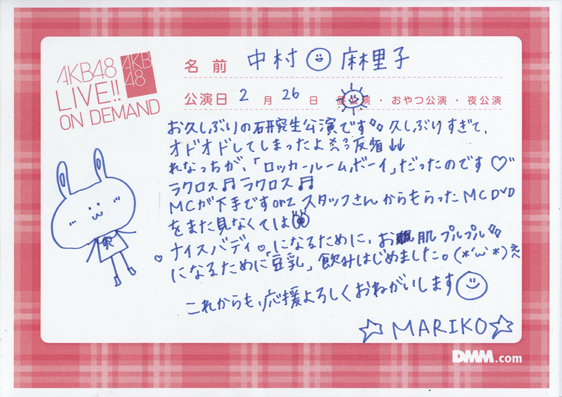 AKB48
LIVE!!
ON DEMAND
AKB
48
名前 中村 麻里子
公演日 2月26日 昼公演・おやつ公演・夜公演
お久しぶりの研究生公演です 久しぶりすぎて、
オドオドしてしまったよ 反省
れなっちが、「ロッカールームボーイ」だったのです♡
ラクロス♫ラクロス♫
MCが下手ですorz スタッフさんからもらったMCDVD
をまた見なくては
ナイスバディ♡になるために、お肌プルプル
になるために「豆乳」飲みはじめました。(*'ω'*)
これからも、応援よろしくおねがいします
☆MARIKO☆
DMM.com